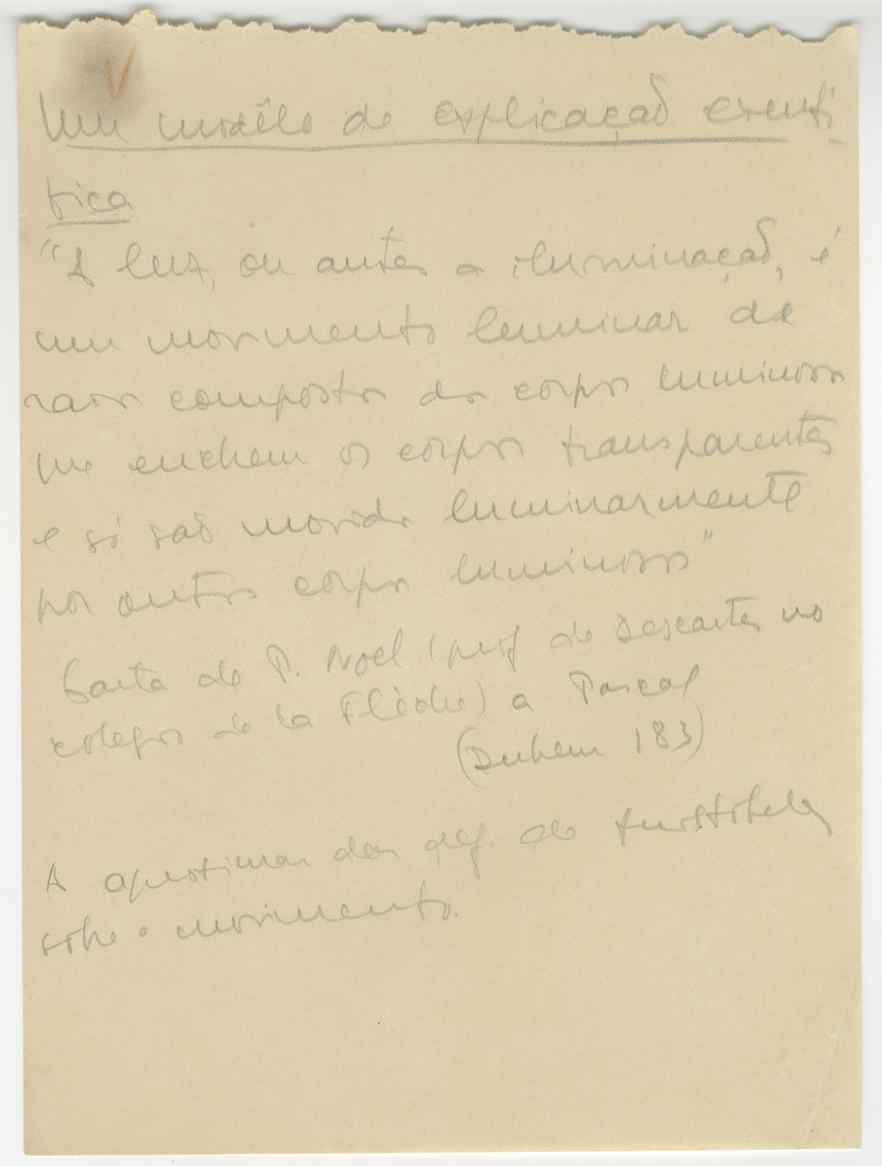 Um modêlo de explicação cientí
fica
"A luz, ou antes a iluminação, é
um movimento luminar de
raios compostos dos corpos luminosos
que enchem os corpos transparentes
e só são movidos luminarmente
por outros corpos luminosos"
Carta do P. Noël (prof de Descartes no
colegio de la Flèche) a Pascal
(Duhem 183)
A aproximar das def. de Aristóteles
sobre o movimento.